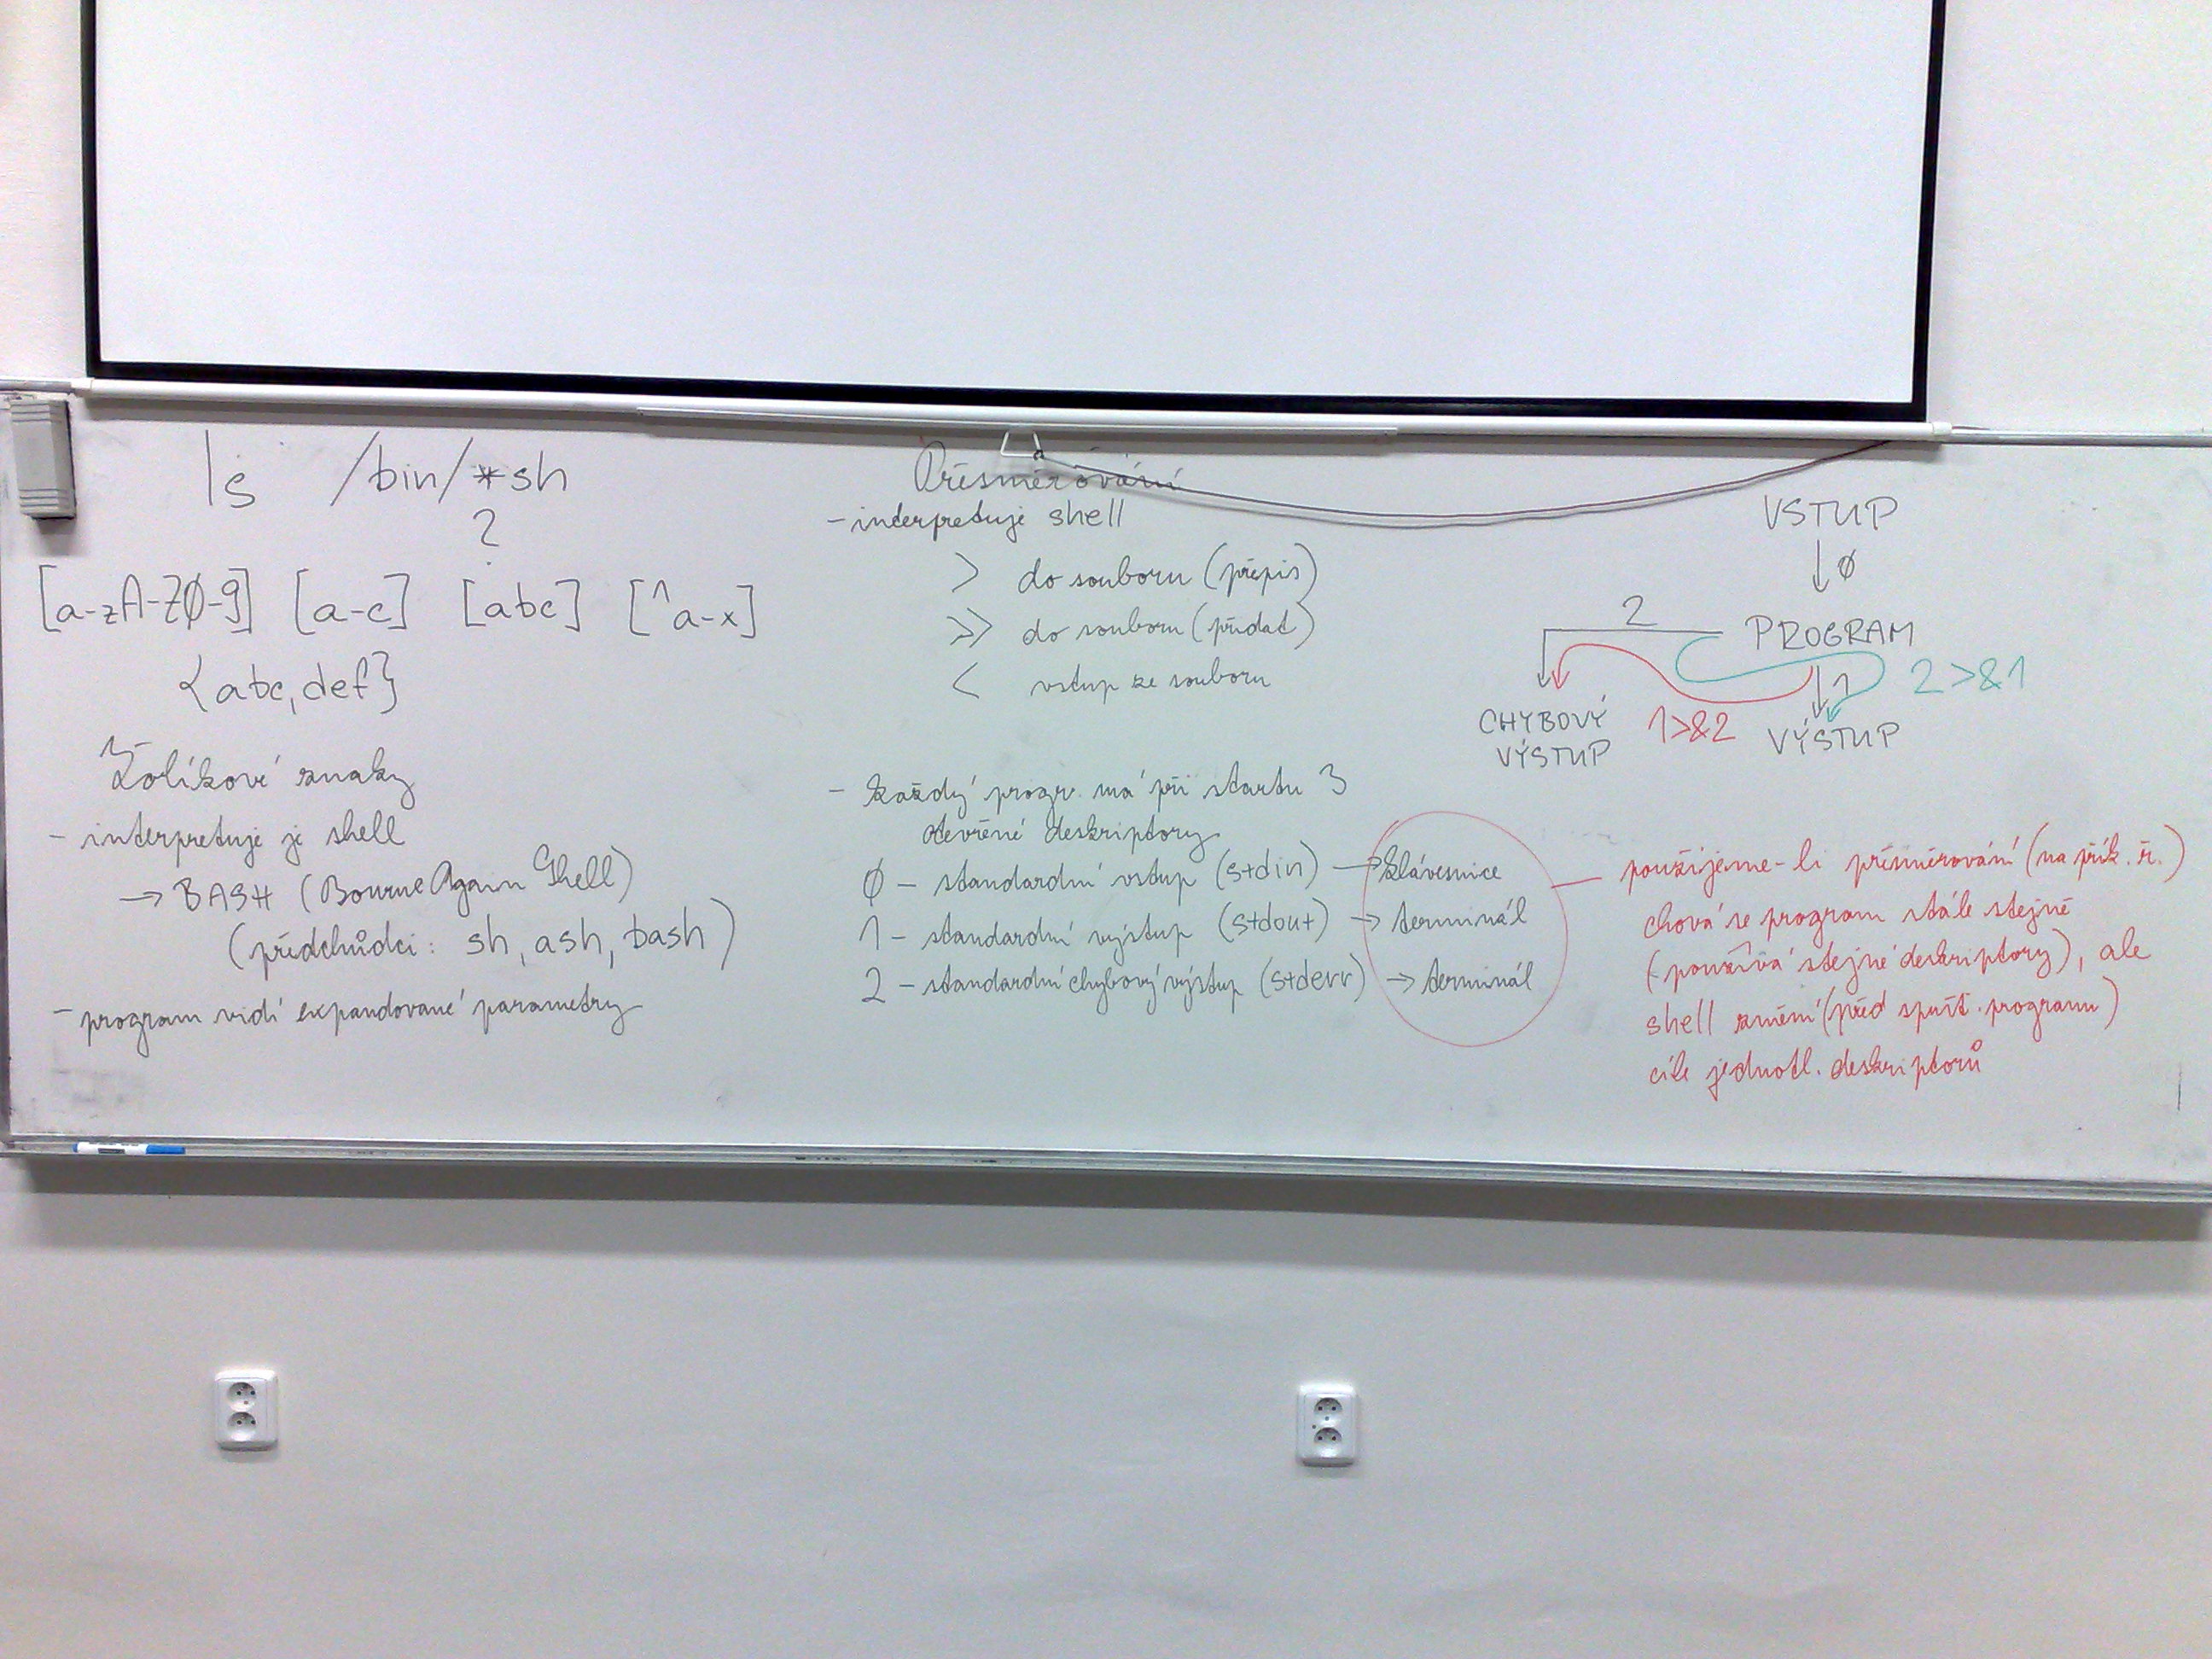 ls /bin/*sh
?
[a-zA-Z0-9] [a-c] [abc] [^a-x]
{abc,def}
Žolíkové znaky
- interpretuje je shell
→ BASH (Bourne Again Shell)
(předchůdci: sh, ash, bash)
- program vidí expandované parametry
Přesměrování
- interpretuje shell
> do souboru (přepis)
>> do souboru (přidat)
< vstup ze souboru
- každý progr. má při startu 3
otevřené deskriptory
0 - standardní vstup (stdin) → klávesnice
1 - standardní výstup (stdout) → terminál
2 - standardní chybový výstup (stderr) → terminál
VSTUP
↓ 0
2 PROGRAM
1 2>&1
CHYBOVÝ
VÝSTUP
1>&2 VÝSTUP
použijeme-li přesměrování (na přík. ř.)
chová se program stále stejně
(používá stejné deskriptory), ale
shell změní (před spušt. programu)
cíle jednotl. deskriptorů